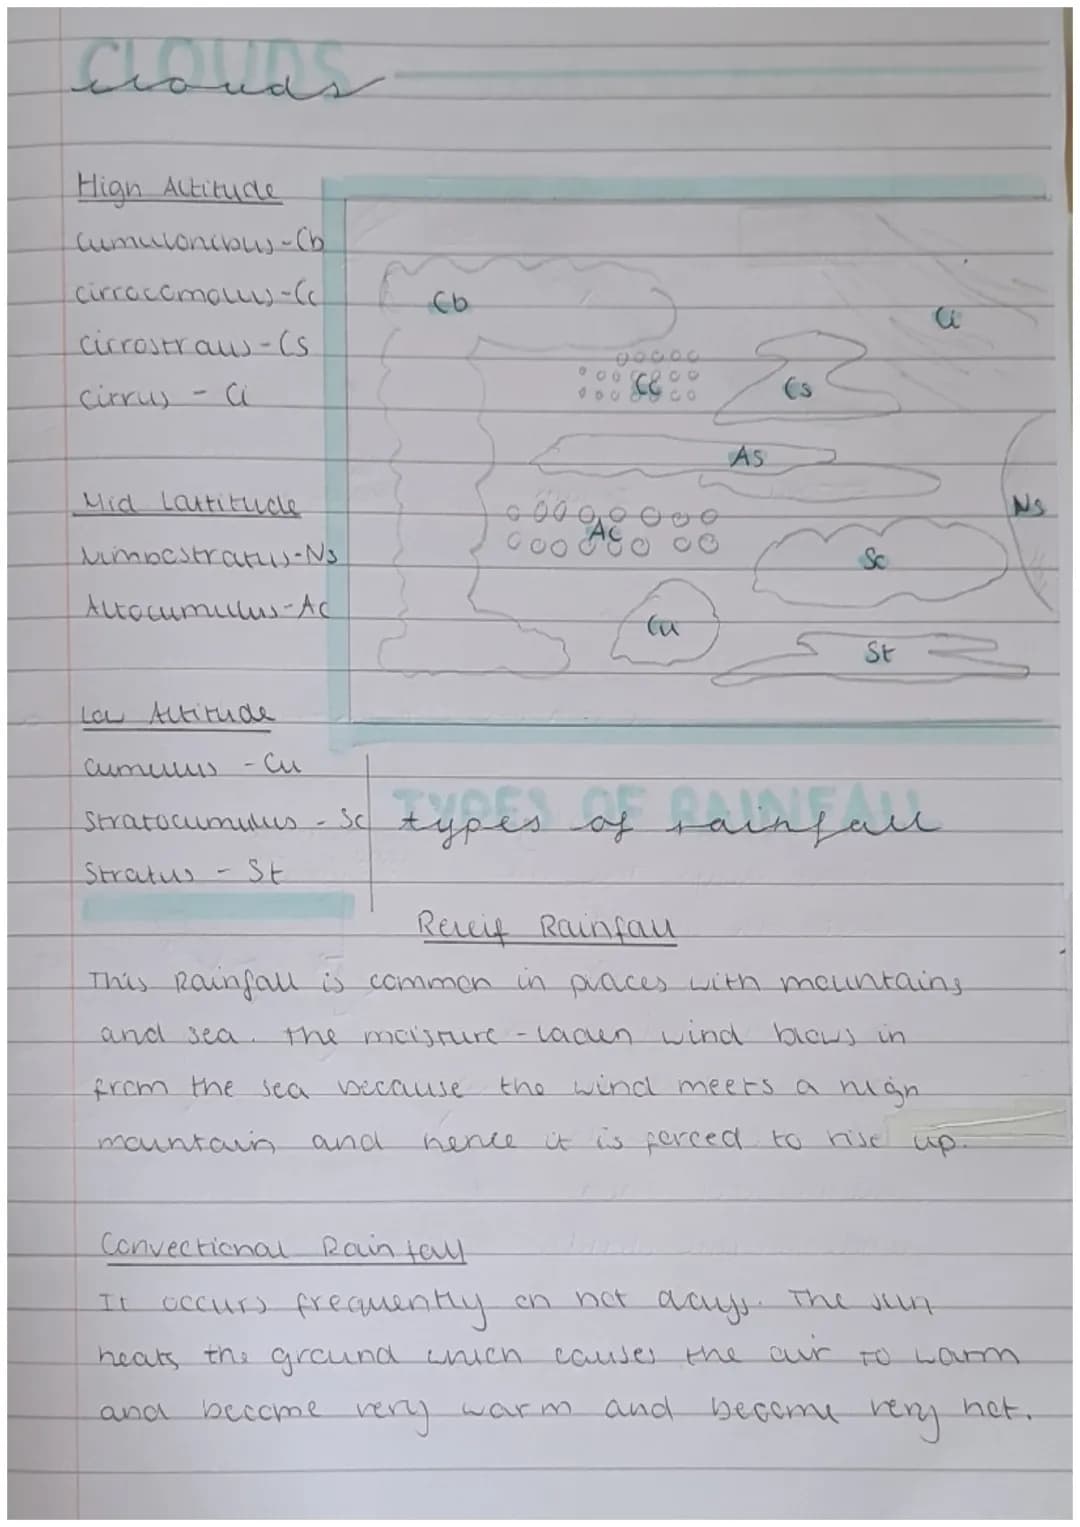 CLOUDS
clouds
High Altitude
Cumulonibus-Cb
cirrocomolus-Cc
Cirrostratus-Cs
Cirrus - Ci
Mid Lartitude
Nimbostratus-Ns
Altocumulus-Ac
Low Altitude
cumulus - Cu
Stratocumulus - Sc
Stratus - St
Cb
Ci
Cc
Cs
As
Ns
Ac
Sc
Cu
St
TYPES OF RAINFALL
types of rainfall
Releif Rainfall
This Rainfall is common in places with mountains
and sea. The moisture-laden wind blows in
from the sea because the wind meets a high
mountain and hence it is forced to rise up.
Convectional Rainfall
It occurs frequently on hot days. The sun
heats the ground which causes the air to warm
and become very warm and become very hot.